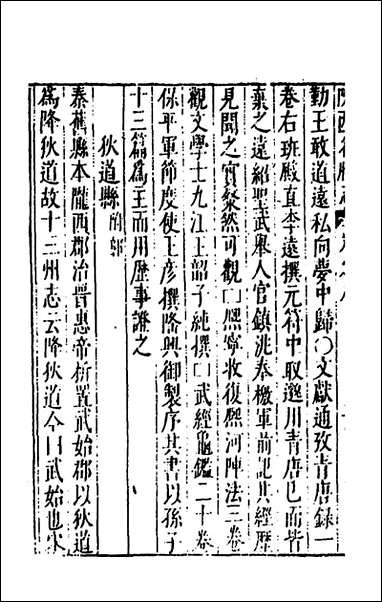 勤王敢道遠私向夢中歸○文獻通攷青唐錄一
卷右班殿直李遠撰元符中取邈川青唐已而皆
棄之遠紹聖武舉人官鎮洮奉檄軍前記其經歷
見聞之實粲然可觀□熙寧收復熙河陣法三卷
觀文學士九江王韶子純撰□武經龜鑑二十卷
保平軍節度使王彥撰隆興御製序其書以孫子
十三篇爲主而用歷事證之
狄道縣 附郭
秦舊縣本隴西郡治晉惠帝析置武始郡以狄道
爲降狄道故十三州志云降狄道今曰武始也宋